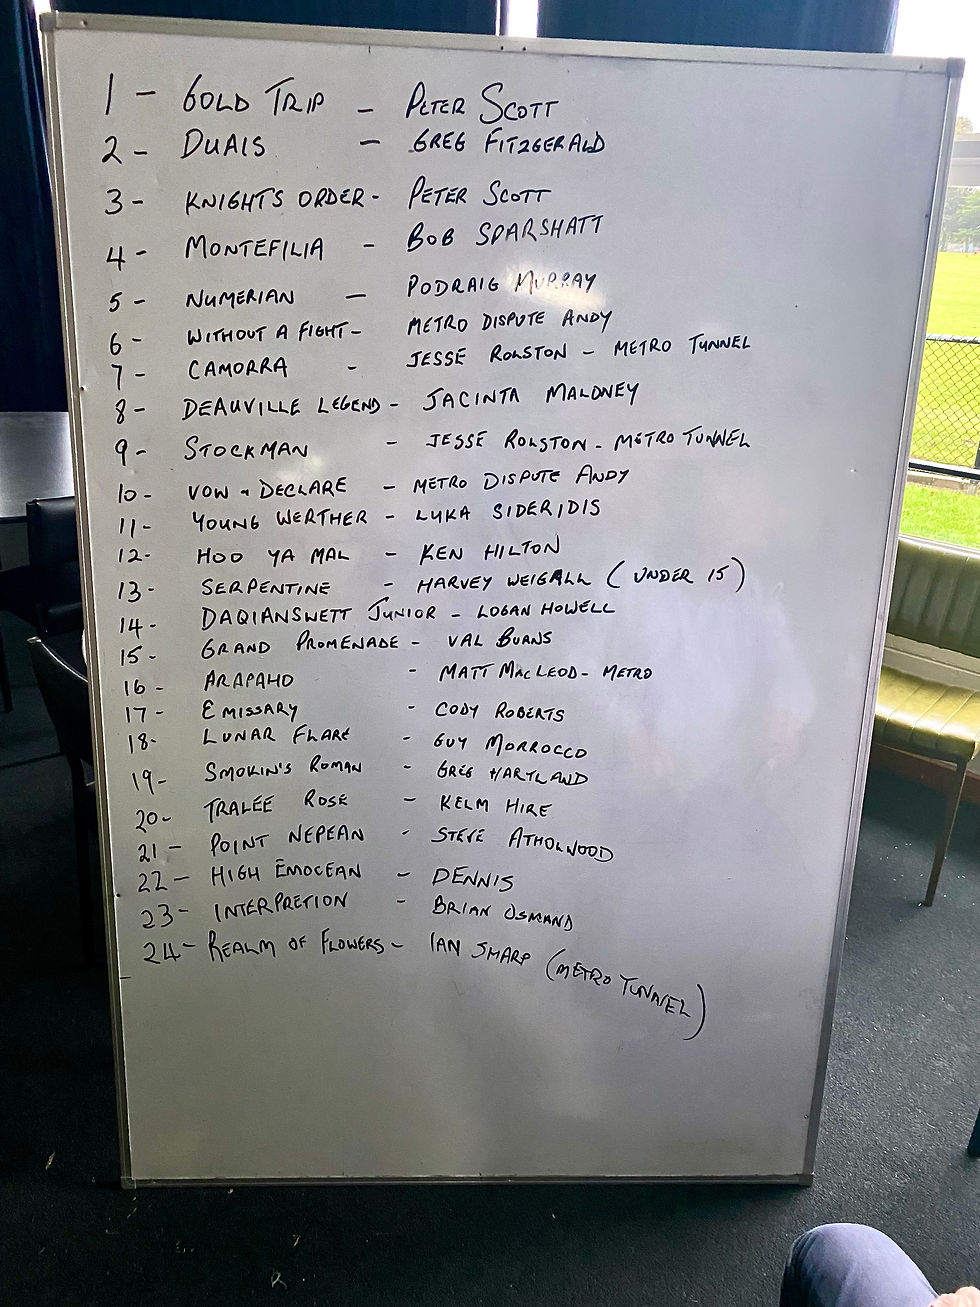 1 - GOLD TRIP - PETER SCOTT
2 - DUAIS - GREG FITZGERALD
3 - KNIGHTS ORDER - PETER SCOTT
4 - MONTEFILIA - BOB SPARSHATT
5 - NUMERIAN - PODRAIG MURRAY
6 - WITHOUT A FIGHT - METRO DISPUTE ANDY
7 - CAMORRA - JESSE ROLSTON - METRO TUNNEL
8 - DEAUVILLE LEGEND - JACINTA MALONEY
9 - STOCKMAN - JESSE ROLSTON - METRO TUNNEL
10 - VOW & DECLARE - METRO DISPUTE ANDY
11 - YOUNG WERTHER - LUKA SIDERIDIS
12 - HOO YA MAL - KEN HILTON
13 - SERPENTINE - HARVEY WEIGALL (UNDER 15)
14 - DAQIANSWETT JUNIOR - LOGAN HOWELL
15 - GRAND PROMENADE - VAL BURNS
16 - ARAPAHO - MATT MACLEOD - METRO
17 - EMISSARY - CODY ROBERTS
18 - LUNAR FLARE - GUY MORROCCO
19 - SMOKIN'S ROMAN - GREG HARTLAND
20 - TRALEE ROSE - KELM HIRE
21 - POINT NEPEAN - STEVE ATHOLWOOD
22 - HIGH EMOCEAN - DENNIS
23 - INTERPRETION - BRIAN OSMAND
24 - REALM OF FLOWERS - IAN SHARP (METRO TUNNEL)